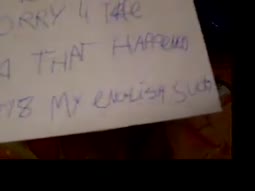 ORRY 4 THE
THAT HAPPEND
MY ENGLISH SUCKS